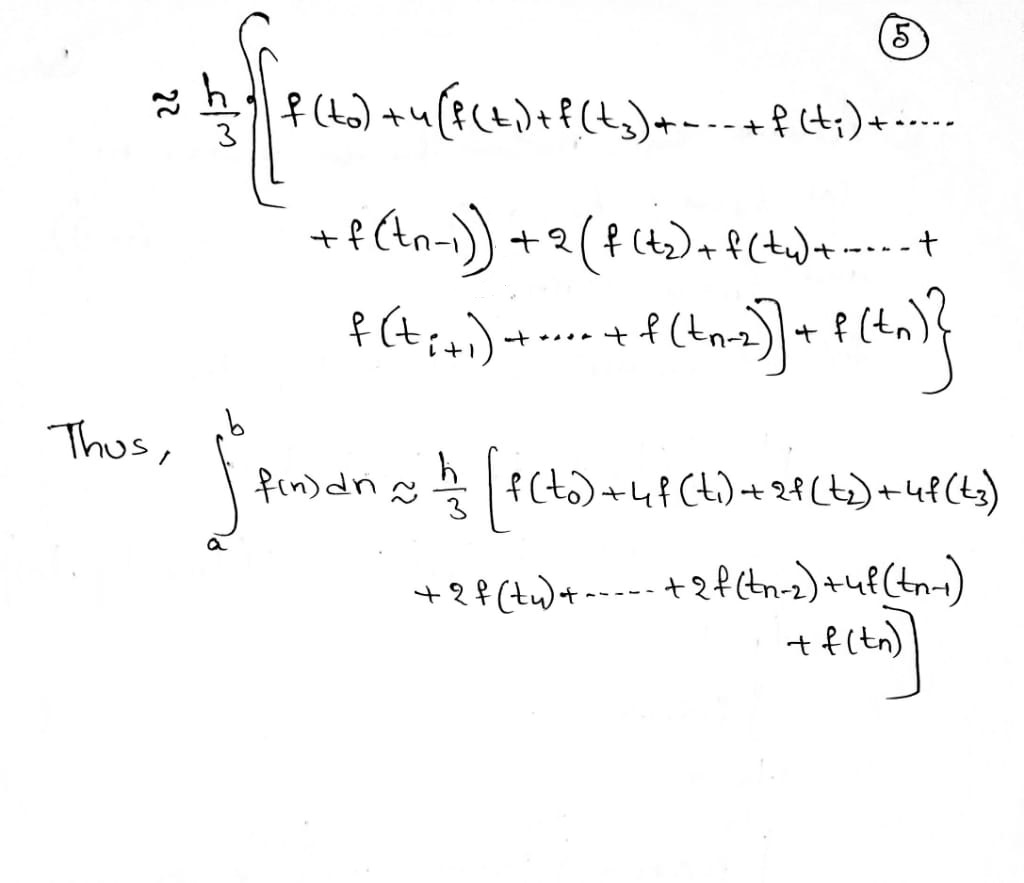 ⑤
≈ h/3 {[f(t₀)+4(f(t₁)+f(t₃)+----+f(tᵢ)+.....
+f(tₙ₋₁))+2(f(t₂)+f(t₄)+.....+
f(tᵢ₊₁)+....+f(tₙ₋₂)]+f(tₙ)}
Thus, ∫ₐᵇ f(n)dn ≈ h/3 [f(t₀)+4f(t₁)+2f(t₂)+4f(t₃)
+2f(t₄)+-----+2f(tₙ₋₂)+4f(tₙ₋₁)
+f(tₙ)]